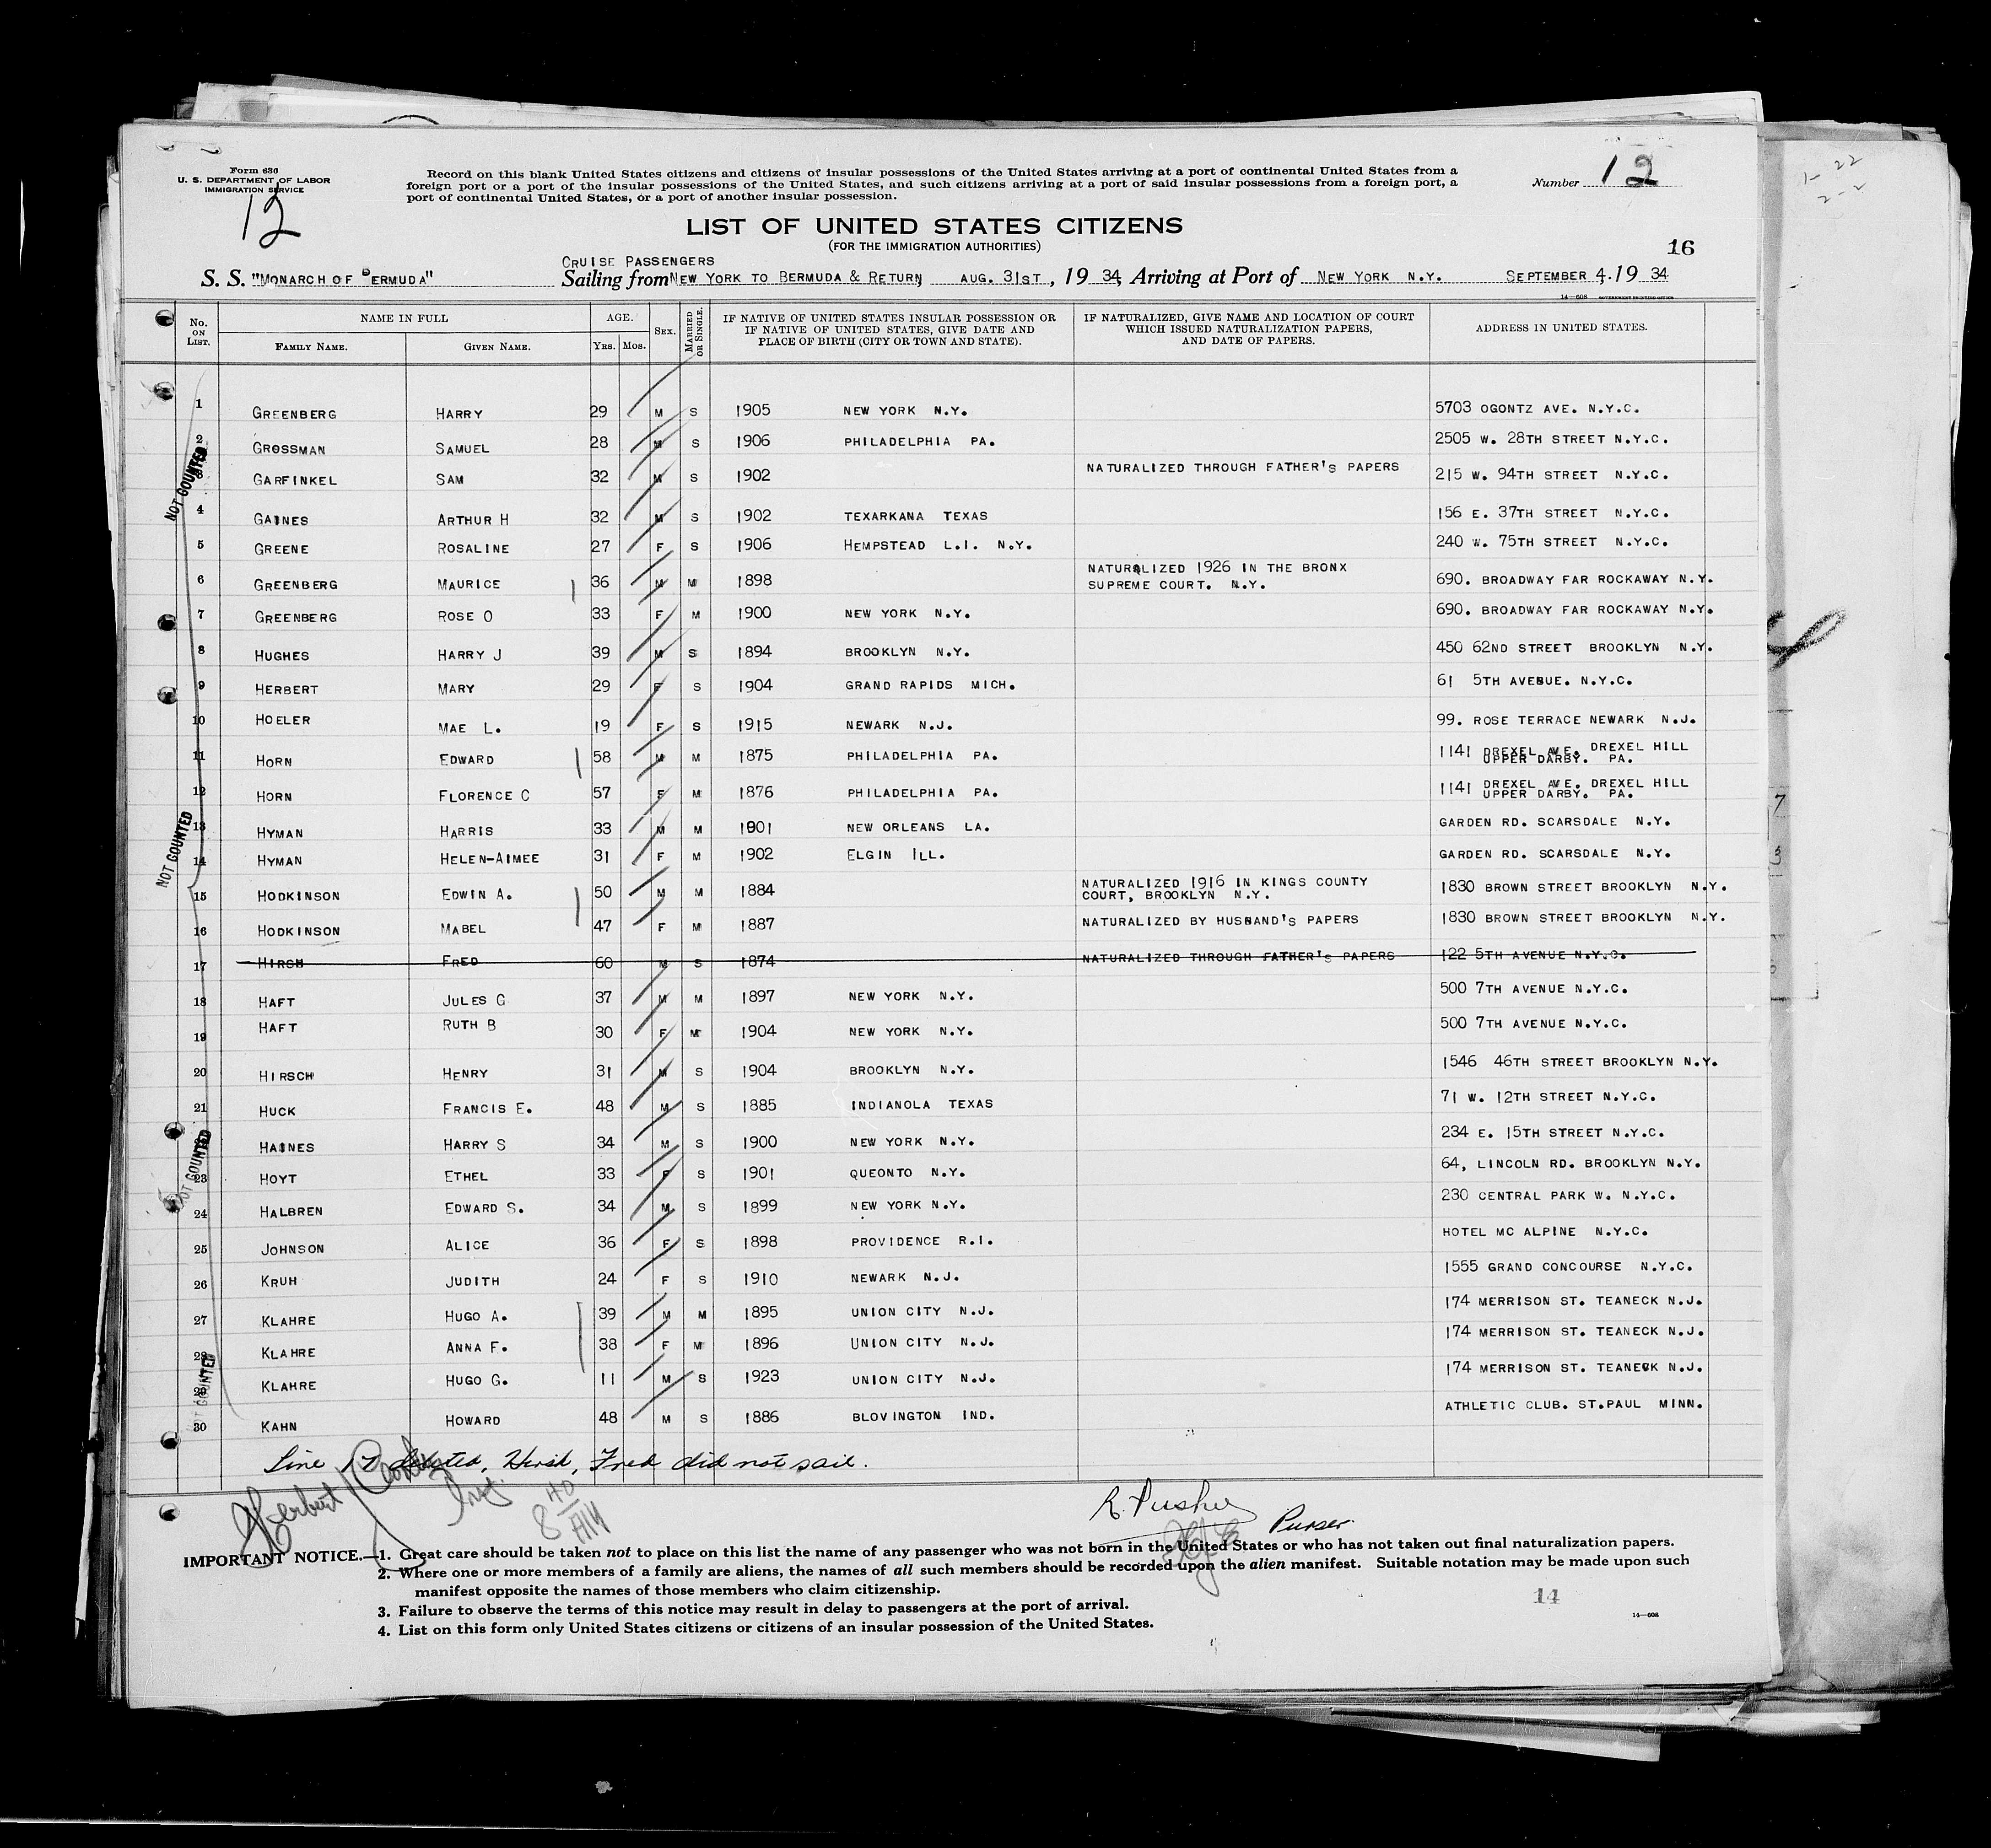 Form 630
U. S. DEPARTMENT OF LABOR
IMMIGRATION SERVICE
12
Record on this blank United States citizens and citizens of insular possessions of the United States arriving at a port of continental United States from a
foreign port or a port of the insular possessions of the United States, and such citizens arriving at a port of said insular possessions from a foreign port, a
port of continental United States, or a port of another insular possession.
Number 12
LIST OF UNITED STATES CITIZENS
(FOR THE IMMIGRATION AUTHORITIES)
16
CRUISE PASSENGERS
S. S. "MONARCH OF BERMUDA" Sailing from NEW YORK TO BERMUDA & RETURN AUG. 31ST, 19 34, Arriving at Port of NEW YORK N.Y. SEPTEMBER 4. 19 34
14—608 GOVERNMENT PRINTING OFFICE
No. ON LIST. NAME IN FULL FAMILY NAME. GIVEN NAME. AGE. YRS. MOS. SEX. MARRIED OR SINGLE. IF NATIVE OF UNITED STATES INSULAR POSSESSION OR IF NATIVE OF UNITED STATES, GIVE DATE AND PLACE OF BIRTH (CITY OR TOWN AND STATE). IF NATURALIZED, GIVE NAME AND LOCATION OF COURT WHICH ISSUED NATURALIZATION PAPERS, AND DATE OF PAPERS. ADDRESS IN UNITED STATES.
1 GREENBERG HARRY 29 M S 1905 NEW YORK N.Y. 5703 OGONTZ AVE. N.Y.C.
2 GROSSMAN SAMUEL 28 M S 1906 PHILADELPHIA PA. 2505 W. 28TH STREET N.Y.C.
3 GARFINKEL SAM 32 M S 1902 NATURALIZED THROUGH FATHER'S PAPERS 215 W. 94TH STREET N.Y.C.
4 GAINES ARTHUR H 32 M S 1902 TEXARKANA TEXAS 156 E. 37TH STREET N.Y.C.
5 GREENE ROSALINE 27 F S 1906 HEMPSTEAD L.I. N.Y. 240 W. 75TH STREET N.Y.C.
6 GREENBERG MAURICE 36 M M 1898 NATURALIZED 1926 IN THE BRONX SUPREME COURT. N.Y. 690. BROADWAY FAR ROCKAWAY N.Y.
7 GREENBERG ROSE O 33 F M 1900 NEW YORK N.Y. 690. BROADWAY FAR ROCKAWAY N.Y.
8 HUGHES HARRY J 39 M S 1894 BROOKLYN N.Y. 450 62ND STREET BROOKLYN N.Y.
9 HERBERT MARY 29 F S 1904 GRAND RAPIDS MICH. 61 5TH AVEBUE. N.Y.C.
10 HOELER MAE L. 19 F S 1915 NEWARK N.J. 99. ROSE TERRACE NEWARK N.J.
11 HORN EDWARD 58 M M 1875 PHILADELPHIA PA. 1141 DREXEL AVE. DREXEL HILL UPPER DARBY. PA.
12 HORN FLORENCE C 57 F M 1876 PHILADELPHIA PA. 1141 DREXEL AVE. DREXEL HILL UPPER DARBY. PA.
13 HYMAN HARRIS 33 M M 1901 NEW ORLEANS LA. GARDEN RD. SCARSDALE N.Y.
14 HYMAN HELEN-AIMEE 31 F M 1902 ELGIN ILL. GARDEN RD. SCARSDALE N.Y.
15 HODKINSON EDWIN A. 50 M M 1884 NATURALIZED 1916 IN KINGS COUNTY COURT, BROOKLYN N.Y. 1830 BROWN STREET BROOKLYN N.Y.
16 HODKINSON MABEL 47 F M 1887 NATURALIZED BY HUSBAND'S PAPERS 1830 BROWN STREET BROOKLYN N.Y.
17 HIRSH FRED 60 M S 1874 NATURALIZED THROUGH FATHER'S PAPERS 122 5TH AVENUE N.Y.C.
18 HAFT JULES G 37 M M 1897 NEW YORK N.Y. 500 7TH AVENUE N.Y.C.
19 HAFT RUTH B 30 F M 1904 NEW YORK N.Y. 500 7TH AVENUE N.Y.C.
20 HIRSCH HENRY 31 M S 1904 BROOKLYN N.Y. 1546 46TH STREET BROOKLYN N.Y.
21 HUCK FRANCIS E. 48 M S 1885 INDIANOLA TEXAS 71 W. 12TH STREET N.Y.C.
22 HAINES HARRY S 34 M S 1900 NEW YORK N.Y. 234 E. 15TH STREET N.Y.C.
23 HOYT ETHEL 33 F S 1901 QUEONTO N.Y. 64, LINCOLN RD. BROOKLYN N.Y.
24 HALBREN EDWARD S. 34 M S 1899 NEW YORK N.Y. 230 CENTRAL PARK W. N.Y.C.
25 JOHNSON ALICE 36 F S 1898 PROVIDENCE R.I. HOTEL MC ALPINE N.Y.C.
26 KRUH JUDITH 24 F S 1910 NEWARK N.J. 1555 GRAND CONCOURSE N.Y.C.
27 KLAHRE HUGO A. 39 M M 1895 UNION CITY N.J. 174 MERRISON ST. TEANECK N.J.
28 KLAHRE ANNA F. 38 F M 1896 UNION CITY N.J. 174 MERRISON ST. TEANECK N.J.
29 KLAHRE HUGO G. 11 M S 1923 UNION CITY N.J. 174 MERRISON ST. TEANECK N.J.
30 KAHN HOWARD 48 M S 1886 BLOVINGTON IND. ATHLETIC CLUB. ST.PAUL MINN.
NOT COUNTED
NOT COUNTED
NOT COUNTED
NOT COUNTED
Line 17 deleted, Hirsh, Fred did not sail.
Herbert
R. Pusher
Purser.
IMPORTANT NOTICE.—1. Great care should be taken not to place on this list the name of any passenger who was not born in the United States or who has not taken out final naturalization papers.
2. Where one or more members of a family are aliens, the names of all such members should be recorded upon the alien manifest. Suitable notation may be made upon such
manifest opposite the names of those members who claim citizenship.
3. Failure to observe the terms of this notice may result in delay to passengers at the port of arrival.
4. List on this form only United States citizens or citizens of an insular possession of the United States.
14
14—608